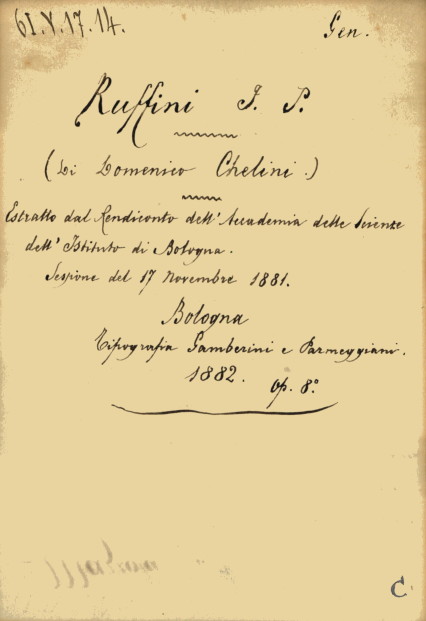 61.V.17.14.
Gen.
Ruffini F. P.
(Di Domenico Chelini.)
Estratto dal Rendiconto dell'Accademia delle Scienze
dell'Istituto di Bologna.
Sessione del 17 Novembre 1881.
Bologna
Tipografia Gamberini e Parmeggiani.
1882. Op. 8º
C